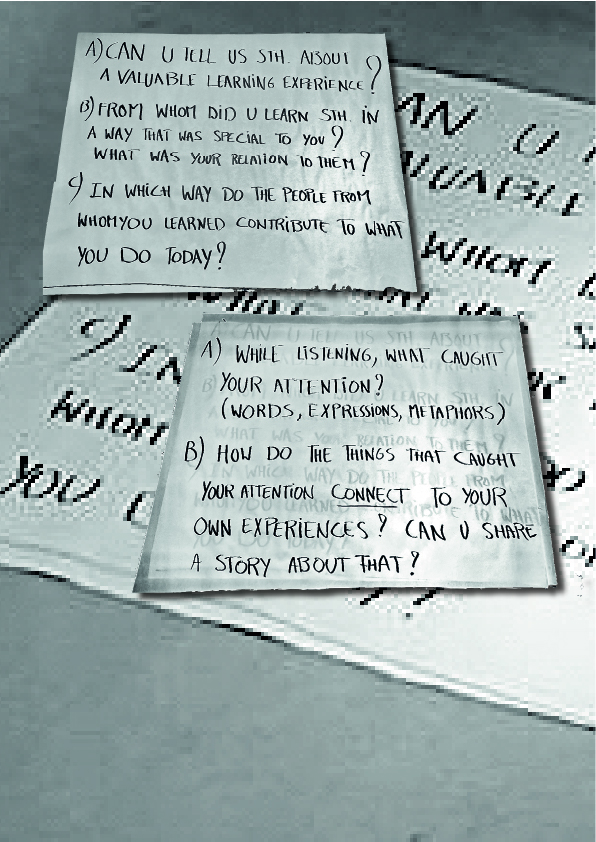 A) CAN U TELL US STH. ABOUT
A VALUABLE LEARNING EXPERIENCE?
B) FROM WHOM DID U LEARN STH. IN
A WAY THAT WAS SPECIAL TO YOU?
WHAT WAS YOUR RELATION TO THEM?
C) IN WHICH WAY DO THE PEOPLE FROM
WHOM YOU LEARNED CONTRIBUTE TO WHAT
YOU DO TODAY?
A) WHILE LISTENING, WHAT CAUGHT
YOUR ATTENTION?
(WORDS, EXPRESSIONS, METAPHORS)
B) HOW DO THE THINGS THAT CAUGHT
YOUR ATTENTION CONNECT TO YOUR
OWN EXPERIENCES? CAN U SHARE
A STORY ABOUT THAT?
AN U
VALUABLE
WHOM
C) IN
WHOM
YOU